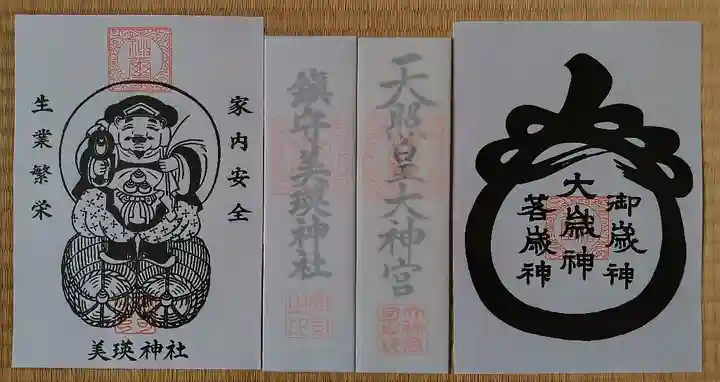 家内安全
生業繁栄
美瑛神社
鎮守美瑛神社
天照皇大神宮
御歳神
大歳神
若歳神